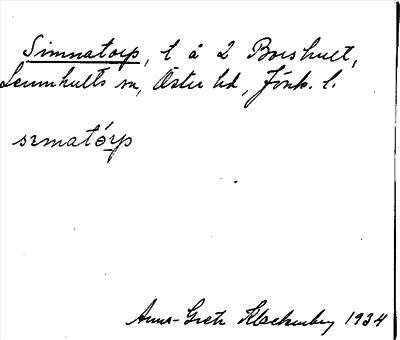 Simnatorp, t å 2 Boeshult,
Lemnhults sn, Öster hd, Jönk. l.
sɪmatórp
Anna-Greta Klockenberg 1934